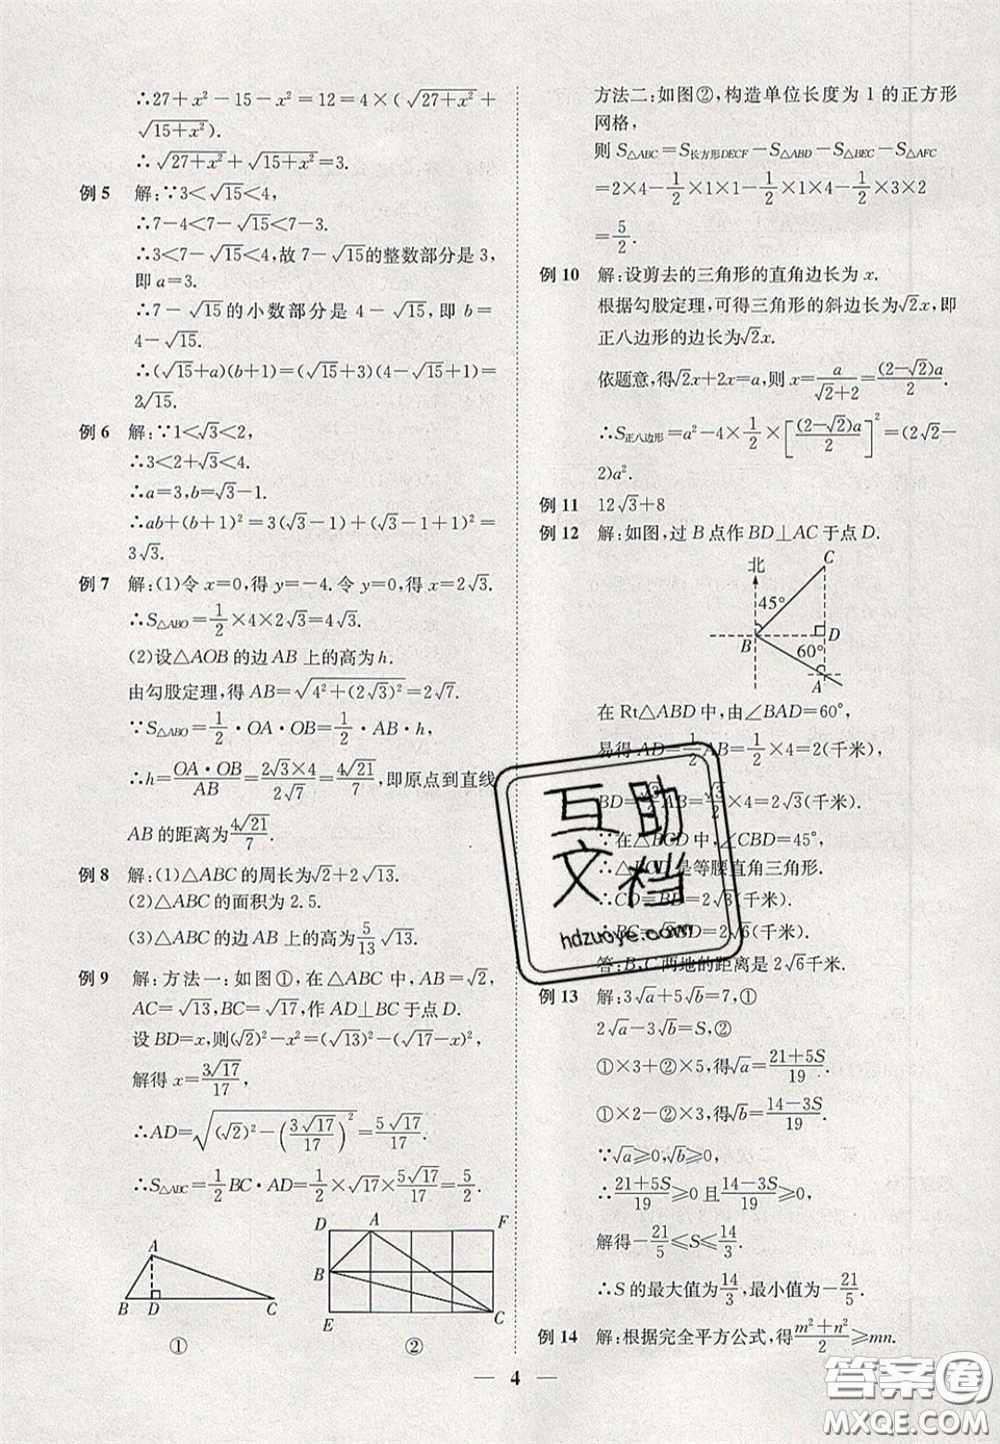 ∴27+x²-15-x²=12=4×(√(27+x²)+
√(15+x²)).
∴√(27+x²)+√(15+x²)=3.
例 5 解:∵3<√15<4,
∴7-4<7-√15<7-3.
∴3<7-√15<4,故 7-√15的整数部分是 3,
即 a=3.
∴7-√15的小数部分是 4-√15,即 b=
4-√15.
∴(√15+a)(b+1)=(√15+3)(4-√15+1)=
2√15.
例 6 解:∵1<√3<2,
∴3<2+√3<4.
∴a=3,b=√3-1.
∴ab+(b+1)²=3(√3-1)+(√3-1+1)²=
3√3.
例 7 解:(1)令 x=0,得 y=-4.令 y=0,得 x=2√3.
∴S△ABO=1/2×4×2√3=4√3.
(2)设△AOB的边 AB 上的高为 h.
由勾股定理,得 AB=√(4²+(2√3)²)=2√7.
∵S△ABO=1/2·OA·OB=1/2·AB·h,
∴h=OA·OB/AB=2√3×4/2√7=4√21/7,即原点到直线
AB 的距离为4√21/7.
例 8 解:(1)△ABC的周长为√2+2√13.
(2)△ABC的面积为 2.5.
(3)△ABC的边 AB 上的高为5/13√13.
例 9 解:方法一:如图①,在△ABC 中,AB=√2,
AC=√13,BC=√17,作 AD⊥BC 于点 D.
设 BD=x,则(√2)²-x²=(√13)²-(√17-x)²,
解得 x=3√17/17,
∴AD=√((√2)²-(3√17/17)²)=5√17/17.
∴S△ABC=1/2BC·AD=1/2×√17×5√17/17=5/2.
A
B D C
①
D A F
B
E C
②
方法二:如图②,构造单位长度为 1 的正方形
网格,
则 S△ABC=S长方形DECF-S△ABD-S△BEC-S△AFC
=2×4-1/2×1×1-1/2×1×4-1/2×3×2
=5/2.
例 10 解:设剪去的三角形的直角边长为 x.
根据勾股定理,可得三角形的斜边长为√2x,即
正八边形的边长为√2x.
依题意,得√2x+2x=a,则 x=a/(√2+2)=(2-√2)a/2.
∴S正八边形=a²-4×1/2×[(2-√2)a/2]²=(2√2-
2)a².
例 11 12√3+8
例 12 解:如图,过 B 点作 BD⊥AC 于点 D.
北
C
45°
B D
60°
A
在 Rt△ABD 中,由∠BAD=60°,
易得 AD=1/2AB=1/2×4=2(千米),
BD=√3/2AB=√3/2×4=2√3(千米).
∵在△BCD 中,∠CBD=45°,
∴△BCD 是等腰直角三角形.
∴CD=BD=2√3(千米).
∴BC=√2BD=2√6(千米).
答:B,C 两地的距离是 2√6千米.
例 13 解:3√a+5√b=7,①
2√a-3√b=S,②
①×3+②×5,得√a=(21+5S)/19.
①×2-②×3,得√b=(14-3S)/19.
∵√a≥0,√b≥0,
∴(21+5S)/19≥0且(14-3S)/19≥0.
解得-21/5≤S≤14/3.
∴S的最大值为14/3,最小值为-21/5.
例 14 解:根据完全平方公式,得(m²+n²)/2≥mn.
4
互助
文档
hdzuoye.com
答案圈
MXQE.COM